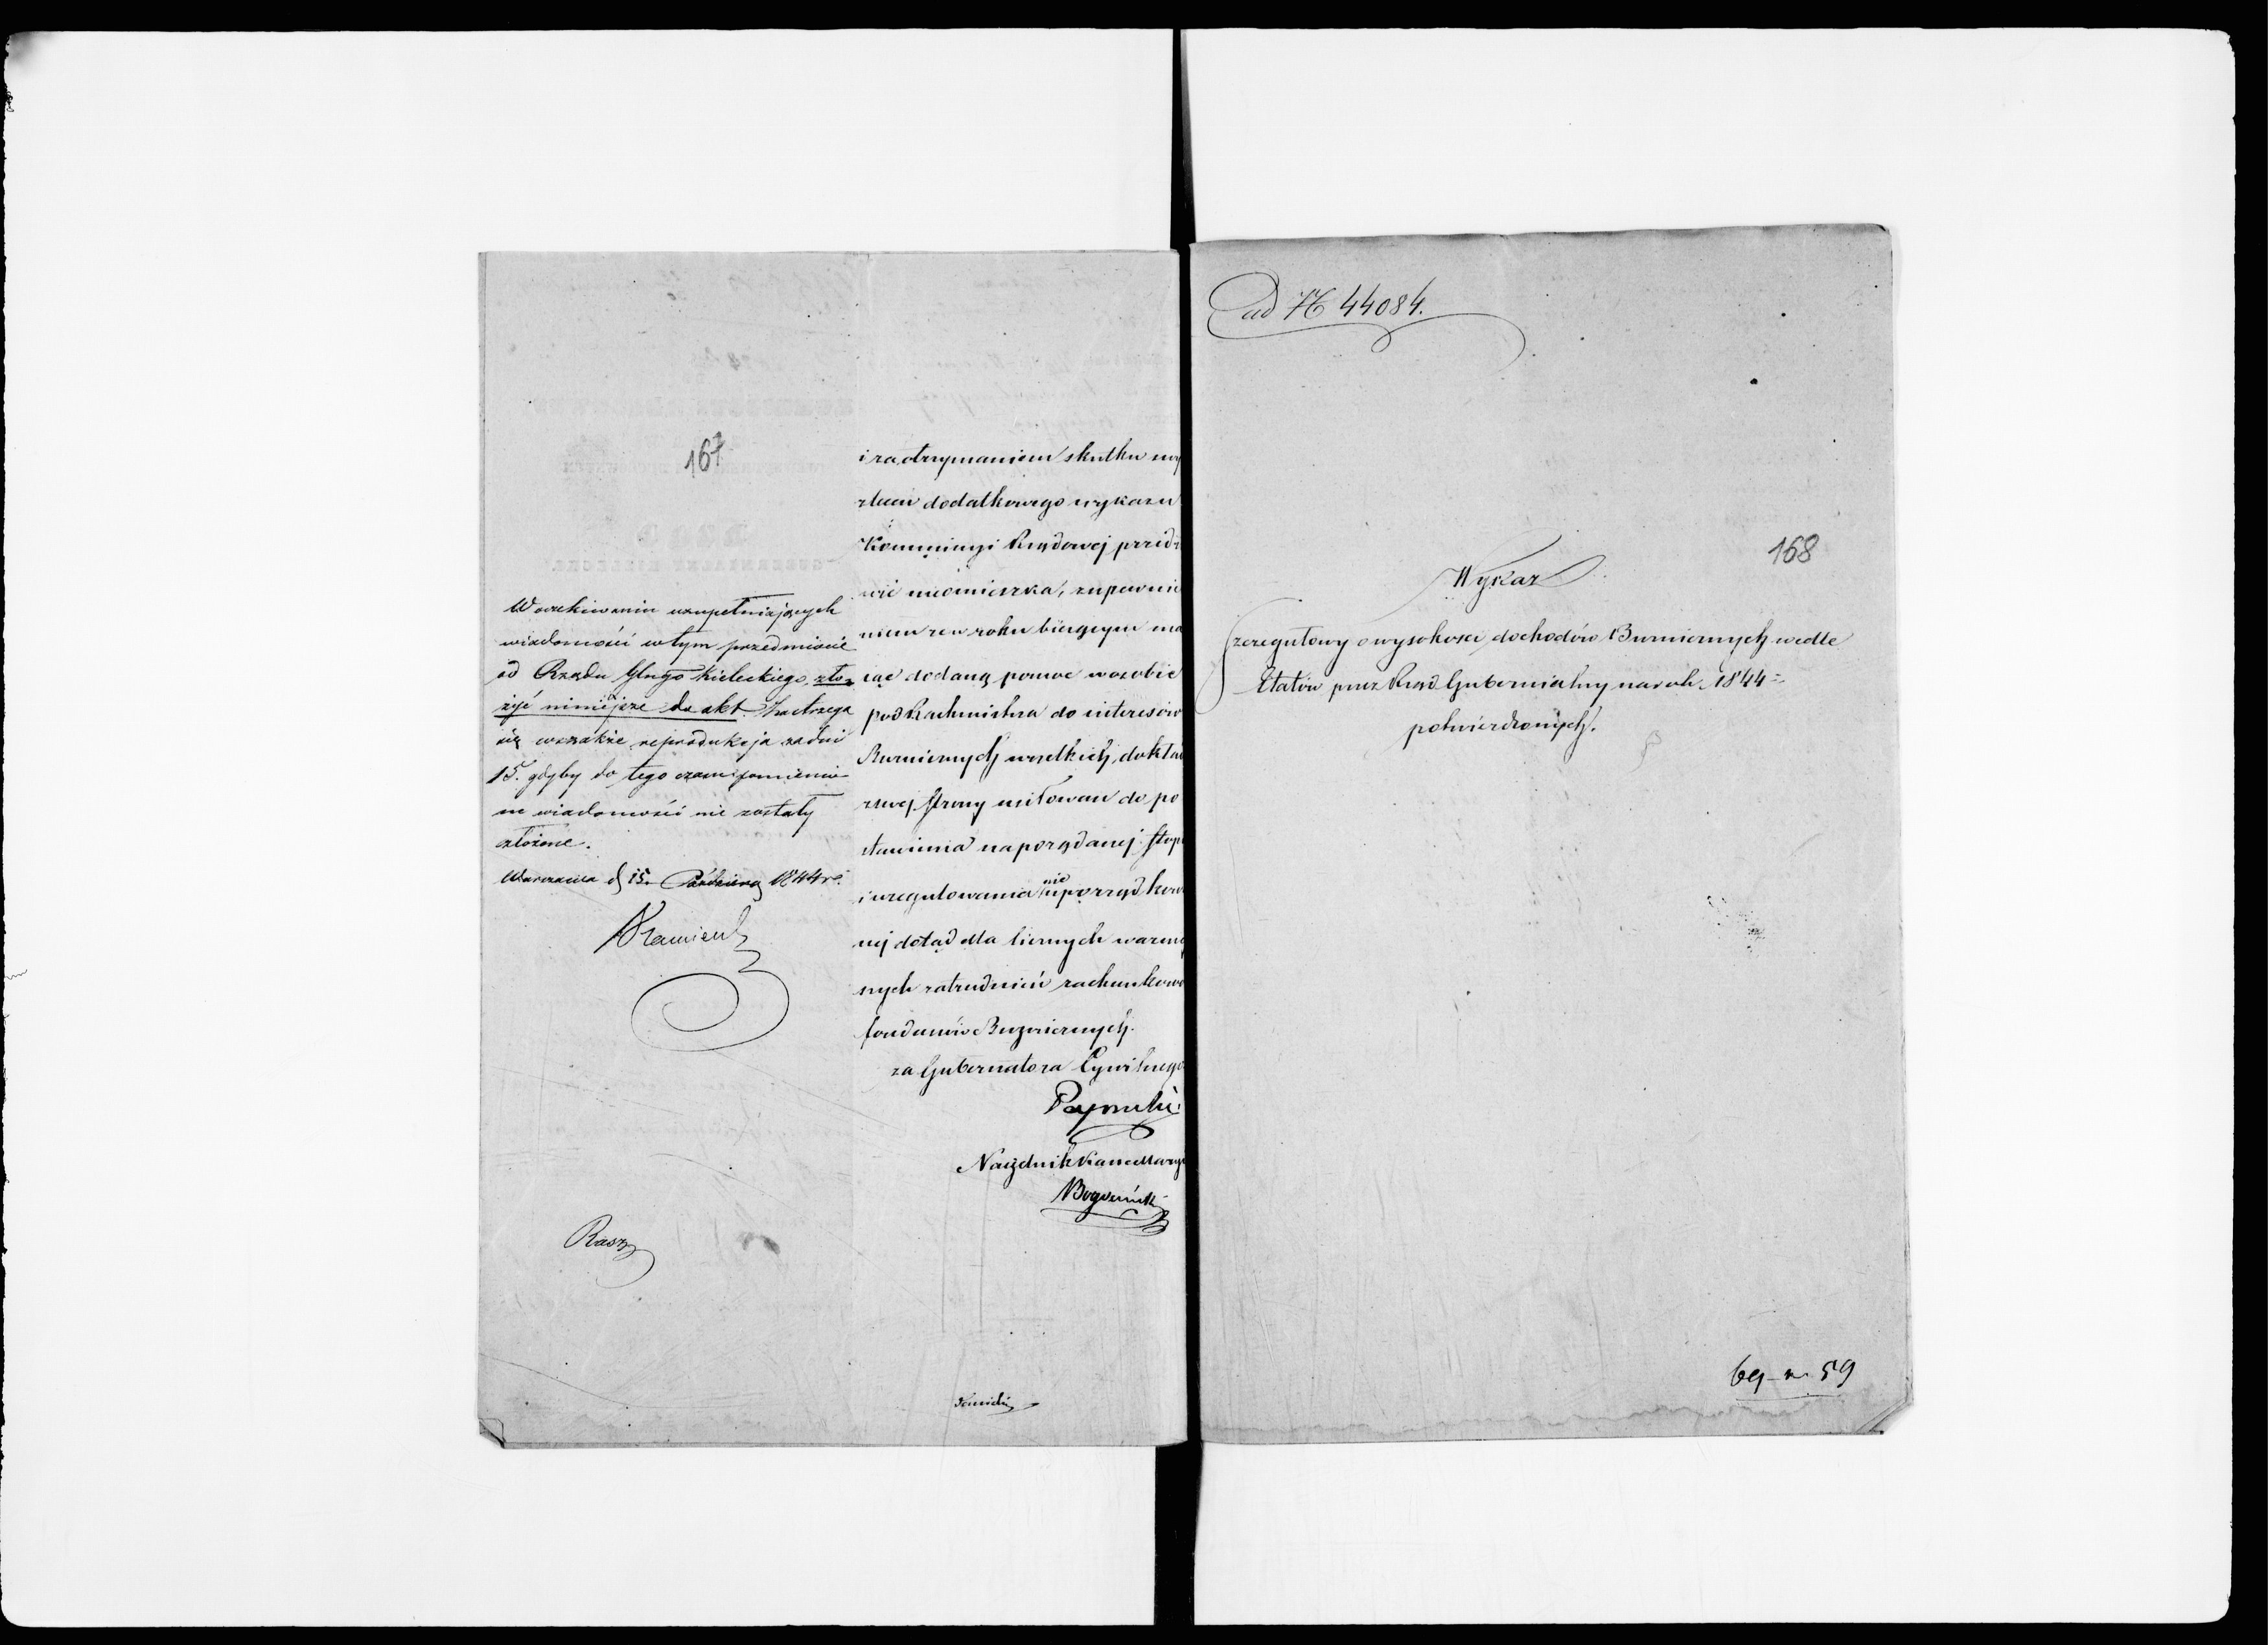 167
W oczekiwaniu uzupełniających
wiadomości w tym przedmiocie
od Rządu Glnego Kieleckiego, zło-
żyć niniejsze do akt. Zastrzega
się wszakże reprodukcja za dni
15. gdyby do tego czasu
wiadomości nie zostały
złożone.
Warszawa d 15. Październ 1844 r.
Rasz
i za otrzymaniem skutku wy
dodatkowego wykazu
Kommissyi Rządowej przedst
wić nieomieszka, zupewnie
niem że w roku bieżącym ma
jąc dodaną pomoc w osobie
podRachmistrza do interesów
Burniemych wszelkich, dokład
z swej strony usiłowań do po
stawienia na porządanej stop
i uregulowania nie uporządkow
nej dotąd dla licznych
snych zatrudnień rachunkowo
funduszów Bużniczych.
za Gubernatora Cywilnego
Naczelnik Kancellaryi
ad N 44084.
168
Wykaz
Szczegułowy o wysokości dochodów Bużniczych wedle
Etatów przez Rząd Gubernialny na rok 1844
potwierdzonych.
59